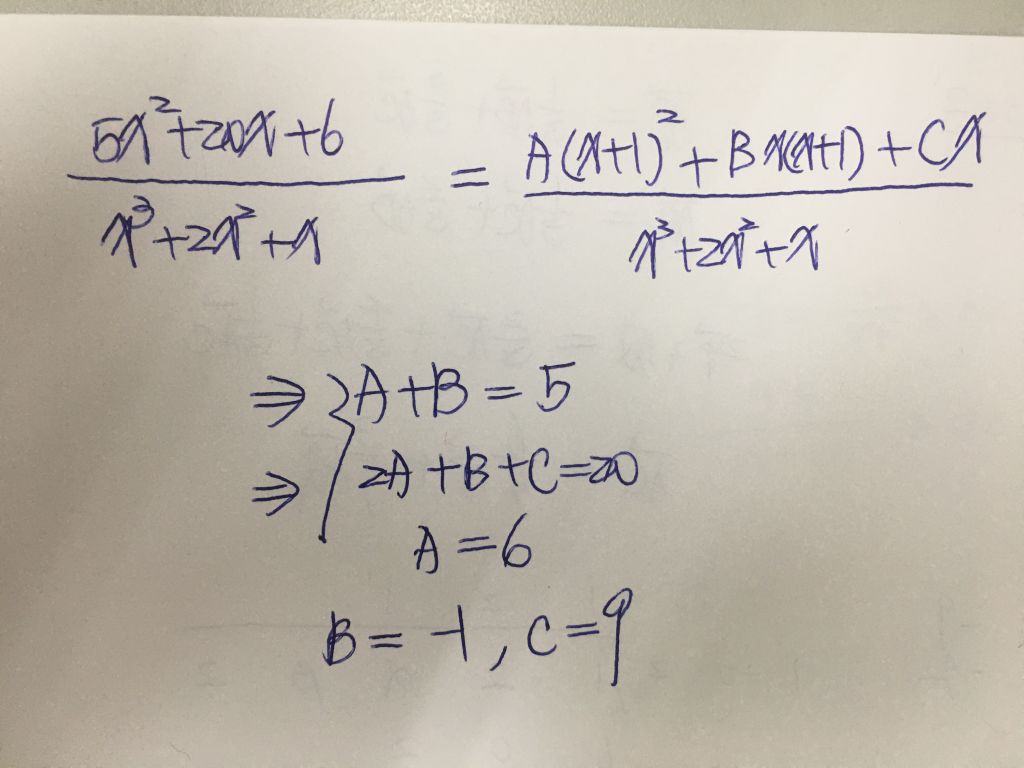 5x²+20x+6 / x³+2x²+x = A(x+1)²+Bx(x+1)+Cx / x³+2x²+x
⇒ { A+B=5
⇒ 2A+B+C=20
A=6
B=-1, C=9